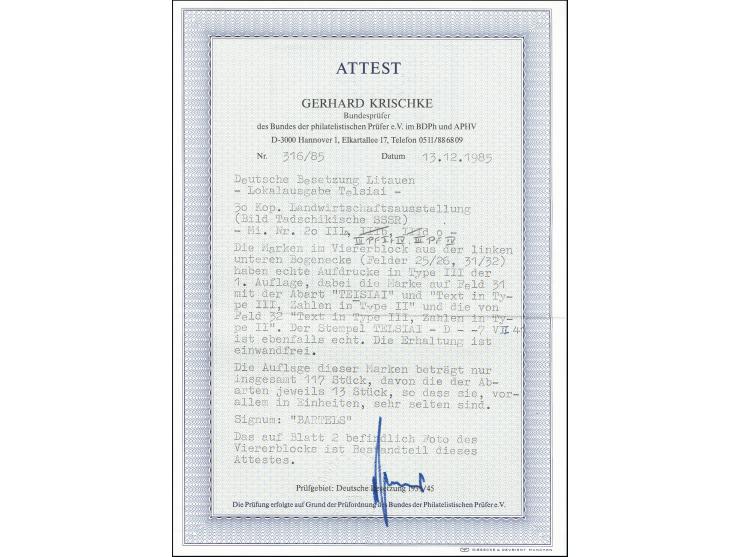 ATTEST
GERHARD KRISCHKE
Bundesprüfer
des Bundes der philatelistischen Prüfer e.V. im BDPh und APHV
D-3000 Hannover 1, Elkartallee 17, Telefon 0511/886809
Nr. 316/85 Datum 13.12.1985
Deutsche Besetzung Litauen
- Lokalausgabe Telsiai -
30 Kop. Landwirtschaftsausstellung
(Bild Tadschikische SSSR)
- Mi. Nr. 20 III, IIIb, IIId o -
III PF I, IV. III PF IV
Die Marken im Viererblock aus der linken
unteren Bogenecke (Felder 25/26, 31/32)
haben echte Aufdrucke in Type III der
1. Auflage, dabei die Marke auf Feld 31
mit der Abart "TEISIAI" und "Text in Ty-
pe III, Zahlen in Type II" und die von
Feld 32 "Text in Type III, Zahlen in Ty-
pe II". Der Stempel TELSIAI - D - -7 VII 41
ist ebenfalls echt. Die Erhaltung ist
einwandfrei.
Die Auflage dieser Marken beträgt nur
insgesamt 117 Stück, davon die der Ab-
arten jeweils 13 Stück, so dass sie, vor-
allem in Einheiten, sehr selten sind.
Signum: "BARTELS"
Das auf Blatt 2 befindlich Foto des
Viererblocks ist Bestandteil dieses
Attestes.
Prüfgebiet: Deutsche Besetzung 1939/45
Die Prüfung erfolgte auf Grund der Prüfordnung des Bundes der Philatelistischen Prüfer e.V.
GIESECKE & DEVRIENT MÜNCHEN